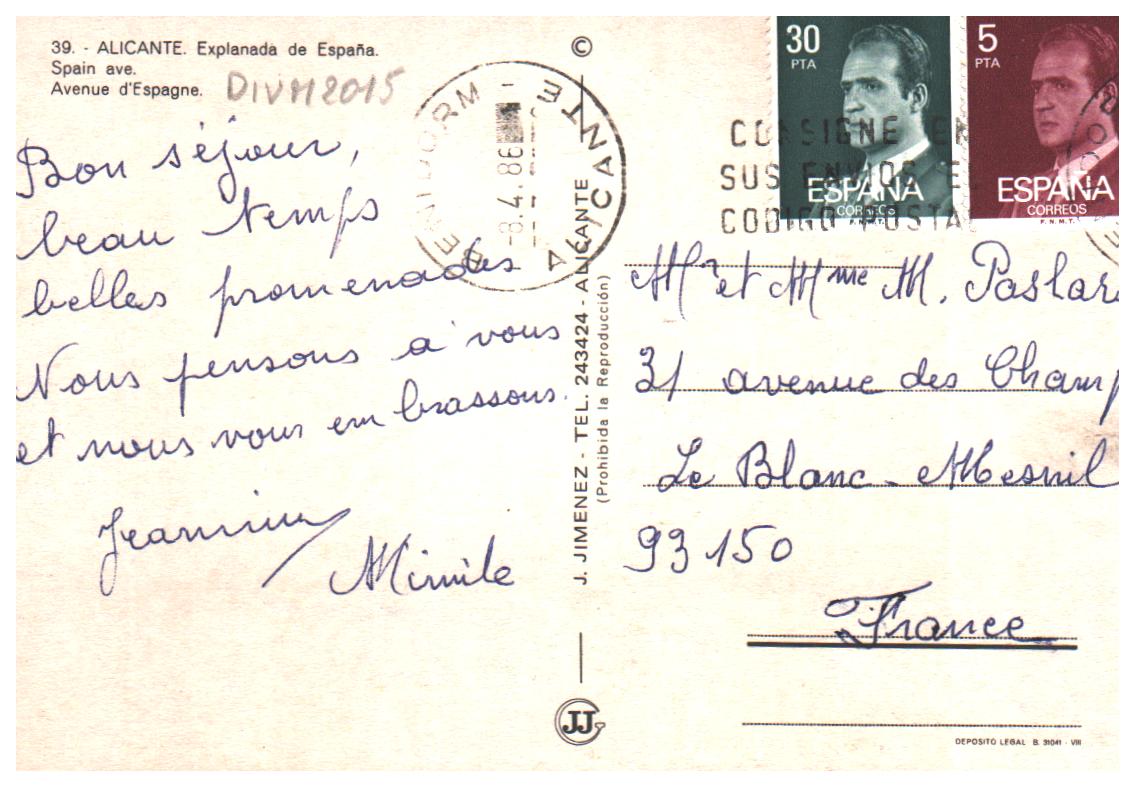 39. - ALICANTE. Explanada de España.
Spain ave.
Avenue d'Espagne.
DIVM2015
Bon séjour,
beau temps
belles promenades
Nous pensons à vous
et nous vous embrassons.
Mimile
©
J. JIMENEZ - TEL. 243424 - ALICANTE
(Prohibida la Reproducción)
JJ
BENIDORM
8.4.86
ALICANTE
CONSIGNE EN
SUS ENVIOS EL
CODIGO POSTAL
30
PTA
ESPAÑA
CORREOS
F.N.M.T.
5
PTA
ESPAÑA
CORREOS
F.N.M.T.
Mr et Mme M.
31 avenue des Champ
Le Blanc-Mesnil
93150
France
DEPOSITO LEGAL B. 31041 - VIII